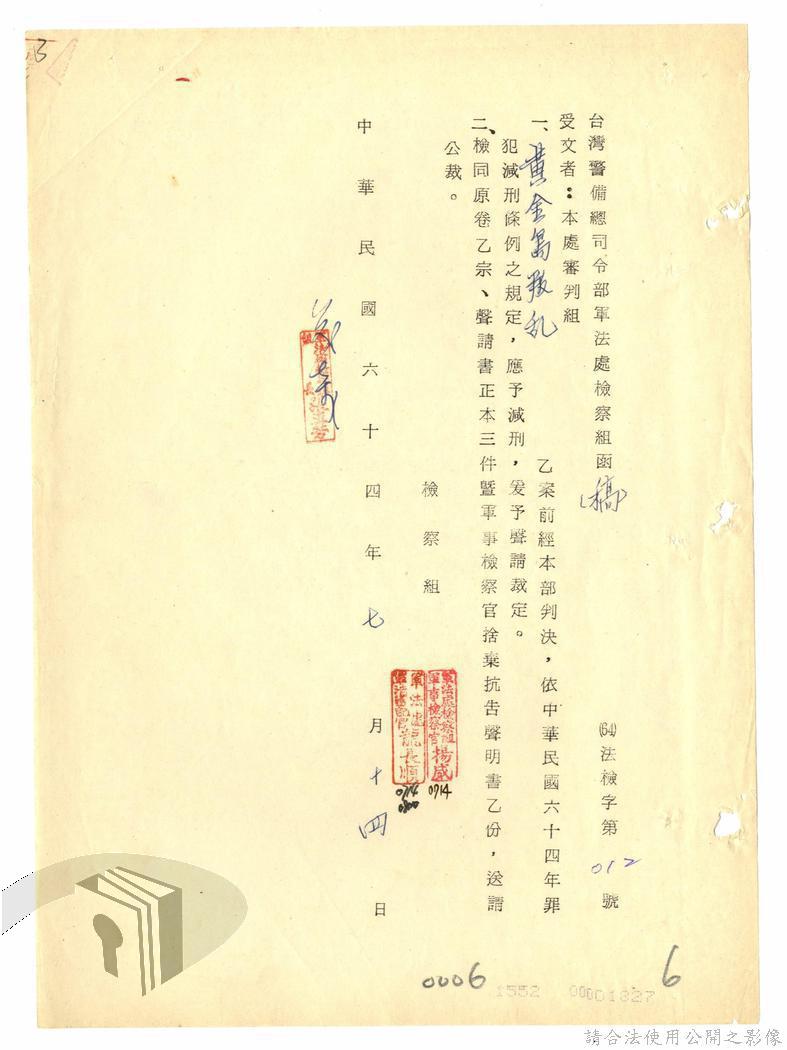 台灣警備總司令部軍法處檢察組函(稿)
(64)法檢字第012號
受文者：本處審判組
一、黃金島叛乱乙案前經本部判決，依中華民國六十四年罪
犯減刑條例之規定，應予減刑，爰予聲請裁定。
二、檢同原卷乙宗、聲請書正本三件暨軍事檢察官捨棄抗告聲明書乙份，送請
公裁。
檢察組
軍法處檢察組
軍事檢察官楊威
0714
0714
中華民國六十四年七月十四日
0006
1552
00001827
6
請合法使用公開之影像